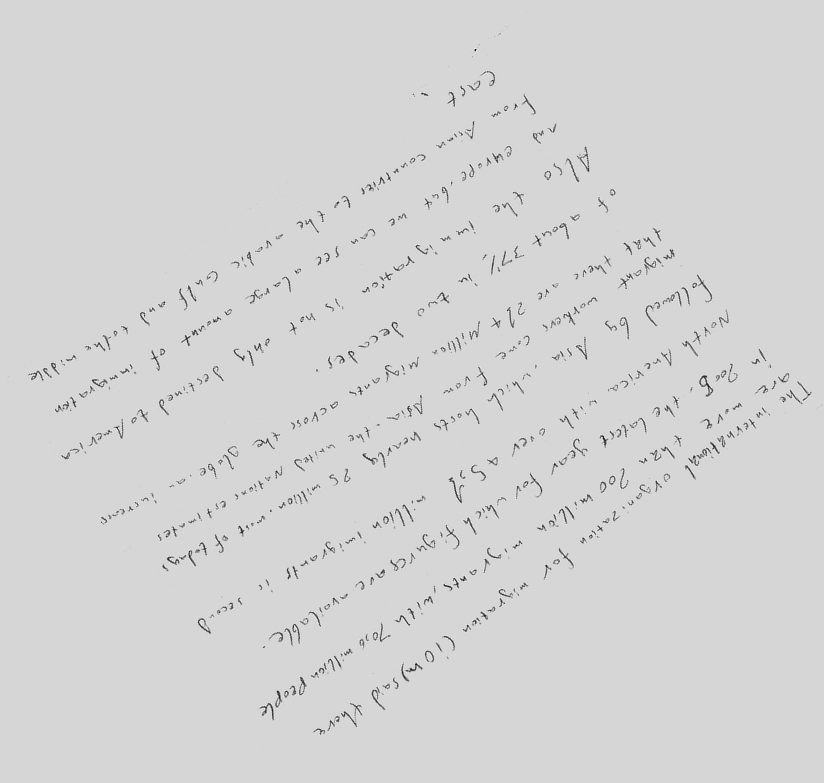 The international organization for migration (iom) said there
are more than 200 million migrants, with 70.6 million people
in 2005, the latest year for which figures are available.
North America with over 45.1 million imigrants is second
followed by Asia, which hosts nearly 25 million. most of todays
migrant workers come from Asia. the united Nations estimates
that there are 214 Million Migrants across the globe. an increas
of about 37% in two decades.
Also the immigration is not only destined to America
and europe. but we can see a large amount of immigration
from Asian countries to the arabic Gulf and to the middle
east.